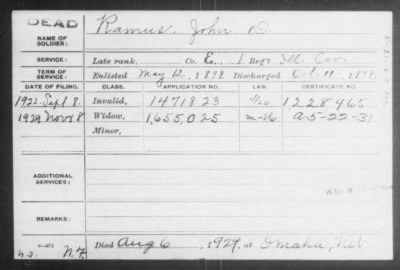 DEAD
NAME OF SOLDIER: Ramus, John D.
SERVICE: Late rank, Co. E, 1 Reg't Ill. Cav.
TERM OF SERVICE: Enlisted May 12, 1898 Discharged Oct. 11, 1898
DATE OF FILING. CLASS. APPLICATION NO. LAW. CERTIFICATE NO.
1922 Sept 8. Invalid, 1471823 1228465
1929 Nov 18 Widow, 1,655,025 m-26 a-5-22-31
Minor,
ADDITIONAL SERVICES:
REMARKS:
Died Aug 6, 1929, at Omaha, Neb.